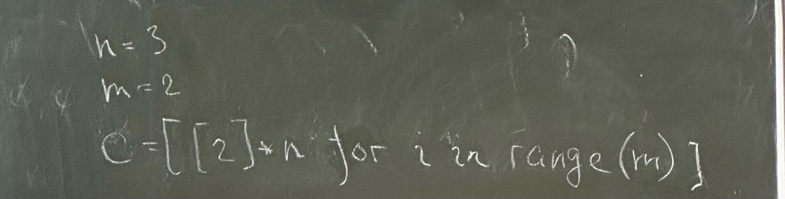 n=3
m=2
C=[[2]*n for i in range(m)]